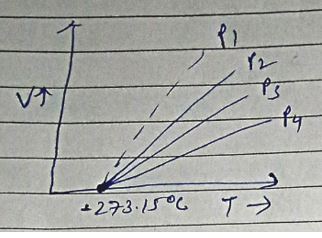 P1
P2
V↑
P3
P4
-273.15°C T →